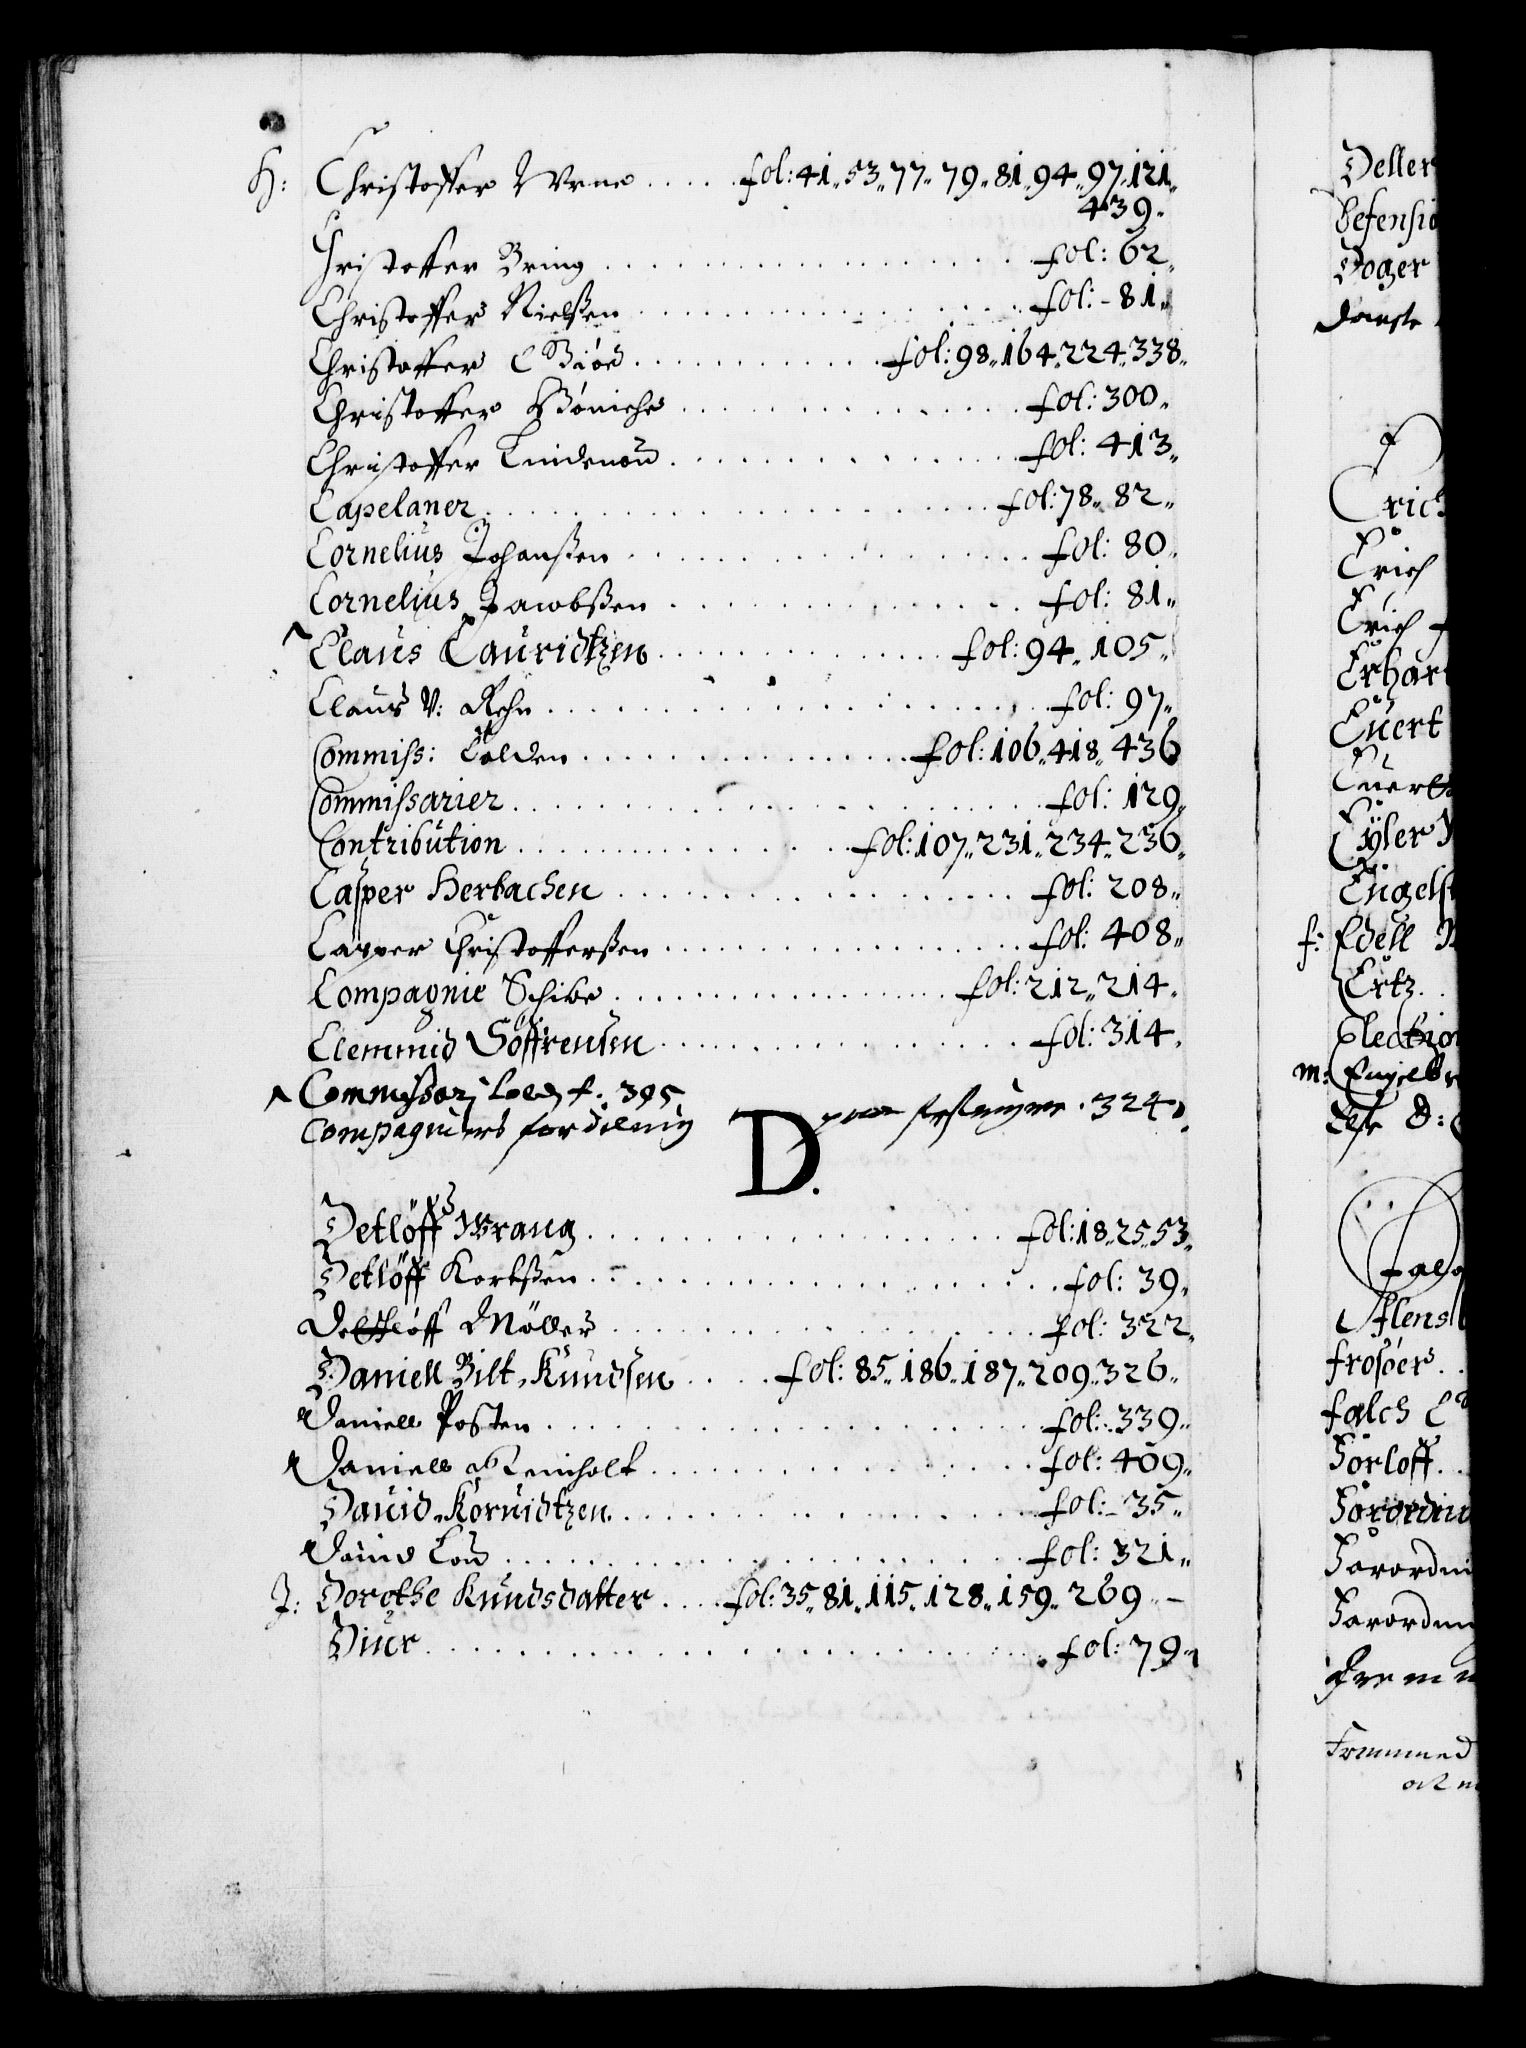 H: Christoffer Wrne . . . . . fol: 41,, 53,, 77,, 79,, 81,, 94,, 97,, 121,,
439,,
Christoffer Bring . . . . . fol: 62,,
Christoffer Nielßen . . . . . fol: 81,,
Christoffer . . . . . fol: 98,, 164,, 224,, 338,,
Christoffer . . . . . fol: 300,,
Christoffer Lindenou . . . . . fol: 413,,
Capelaner . . . . . fol: 78,, 82,,
Cornelius Johanßen . . . . . fol: 80,,
Cornelius Jacobßen . . . . . fol: 81,,
Claus Lauridtzen . . . . . fol: 94,, 105,,
Claus V: Rehn . . . . . fol: 97,,
Commiss: . . . . . fol: 106,, 418,, 436
Commissarier . . . . . fol: 129,,
Contribution . . . . . fol: 107,, 231,, 234,, 236,,
Casper Herbachen . . . . . fol: 208,,
Casper Christofferßen . . . . . fol: 408,,
Compagnie Schibe . . . . . fol: 212,, 214,,
Clemmid Söffrensen . . . . . fol: 314,,
f. 395
Compagniers fordiling paa 324,,
D.
Detlöff Wrang . . . . . fol: 18,, 25,, 53,,
Detlöff Kortßen . . . . . fol: 39,,
Dethlöff Möller . . . . . fol: 322,,
Daniell Bilt, Knudsen . . . . . fol: 85,, 186,, 187,, 209,, 326,,
Daniell Posten . . . . . fol: 339,,
Daniell . . . . . fol: 409,,
Dauid Koruidtzen . . . . . fol: 35,,
Dauid Lou . . . . . fol: 321,,
J: Dorethe Knudsdatter . . . . fol: 35,, 81,, 115,, 128,, 159,, 269,,
Diur . . . . . fol: 79,,
Deller
Defensio
Doger
Danske
Erich
Erich
Erich
Erhar
Euert
Eÿler
Engels
f: Edell
Ertz . .
Election
m: Engelbr
Flensb
froster . .
falch
Forloff . .
Forordni
Forordni
Fremmed